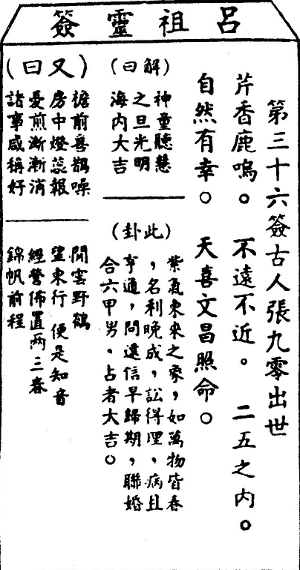 呂祖靈簽
第三十六簽古人張九零出世
芹香鹿鳴。不遠不近。二五之內。
自然有幸。天喜文昌照命。
(解曰)
神童聽慧
之旦光明
海內大吉
(此卦)
紫氣東來之象，如萬物皆春
，名利晚成，訟得理，病且
亨通，問遠信早歸期，聯婚
合六甲男，占者大吉。
(又曰)
簷前喜鵲噪
房中燈蕊報
憂煎漸漸消
諸事咸稱好
閒雲野鶴
望東行 便是知音
經營佈置兩三春
錦帆前程